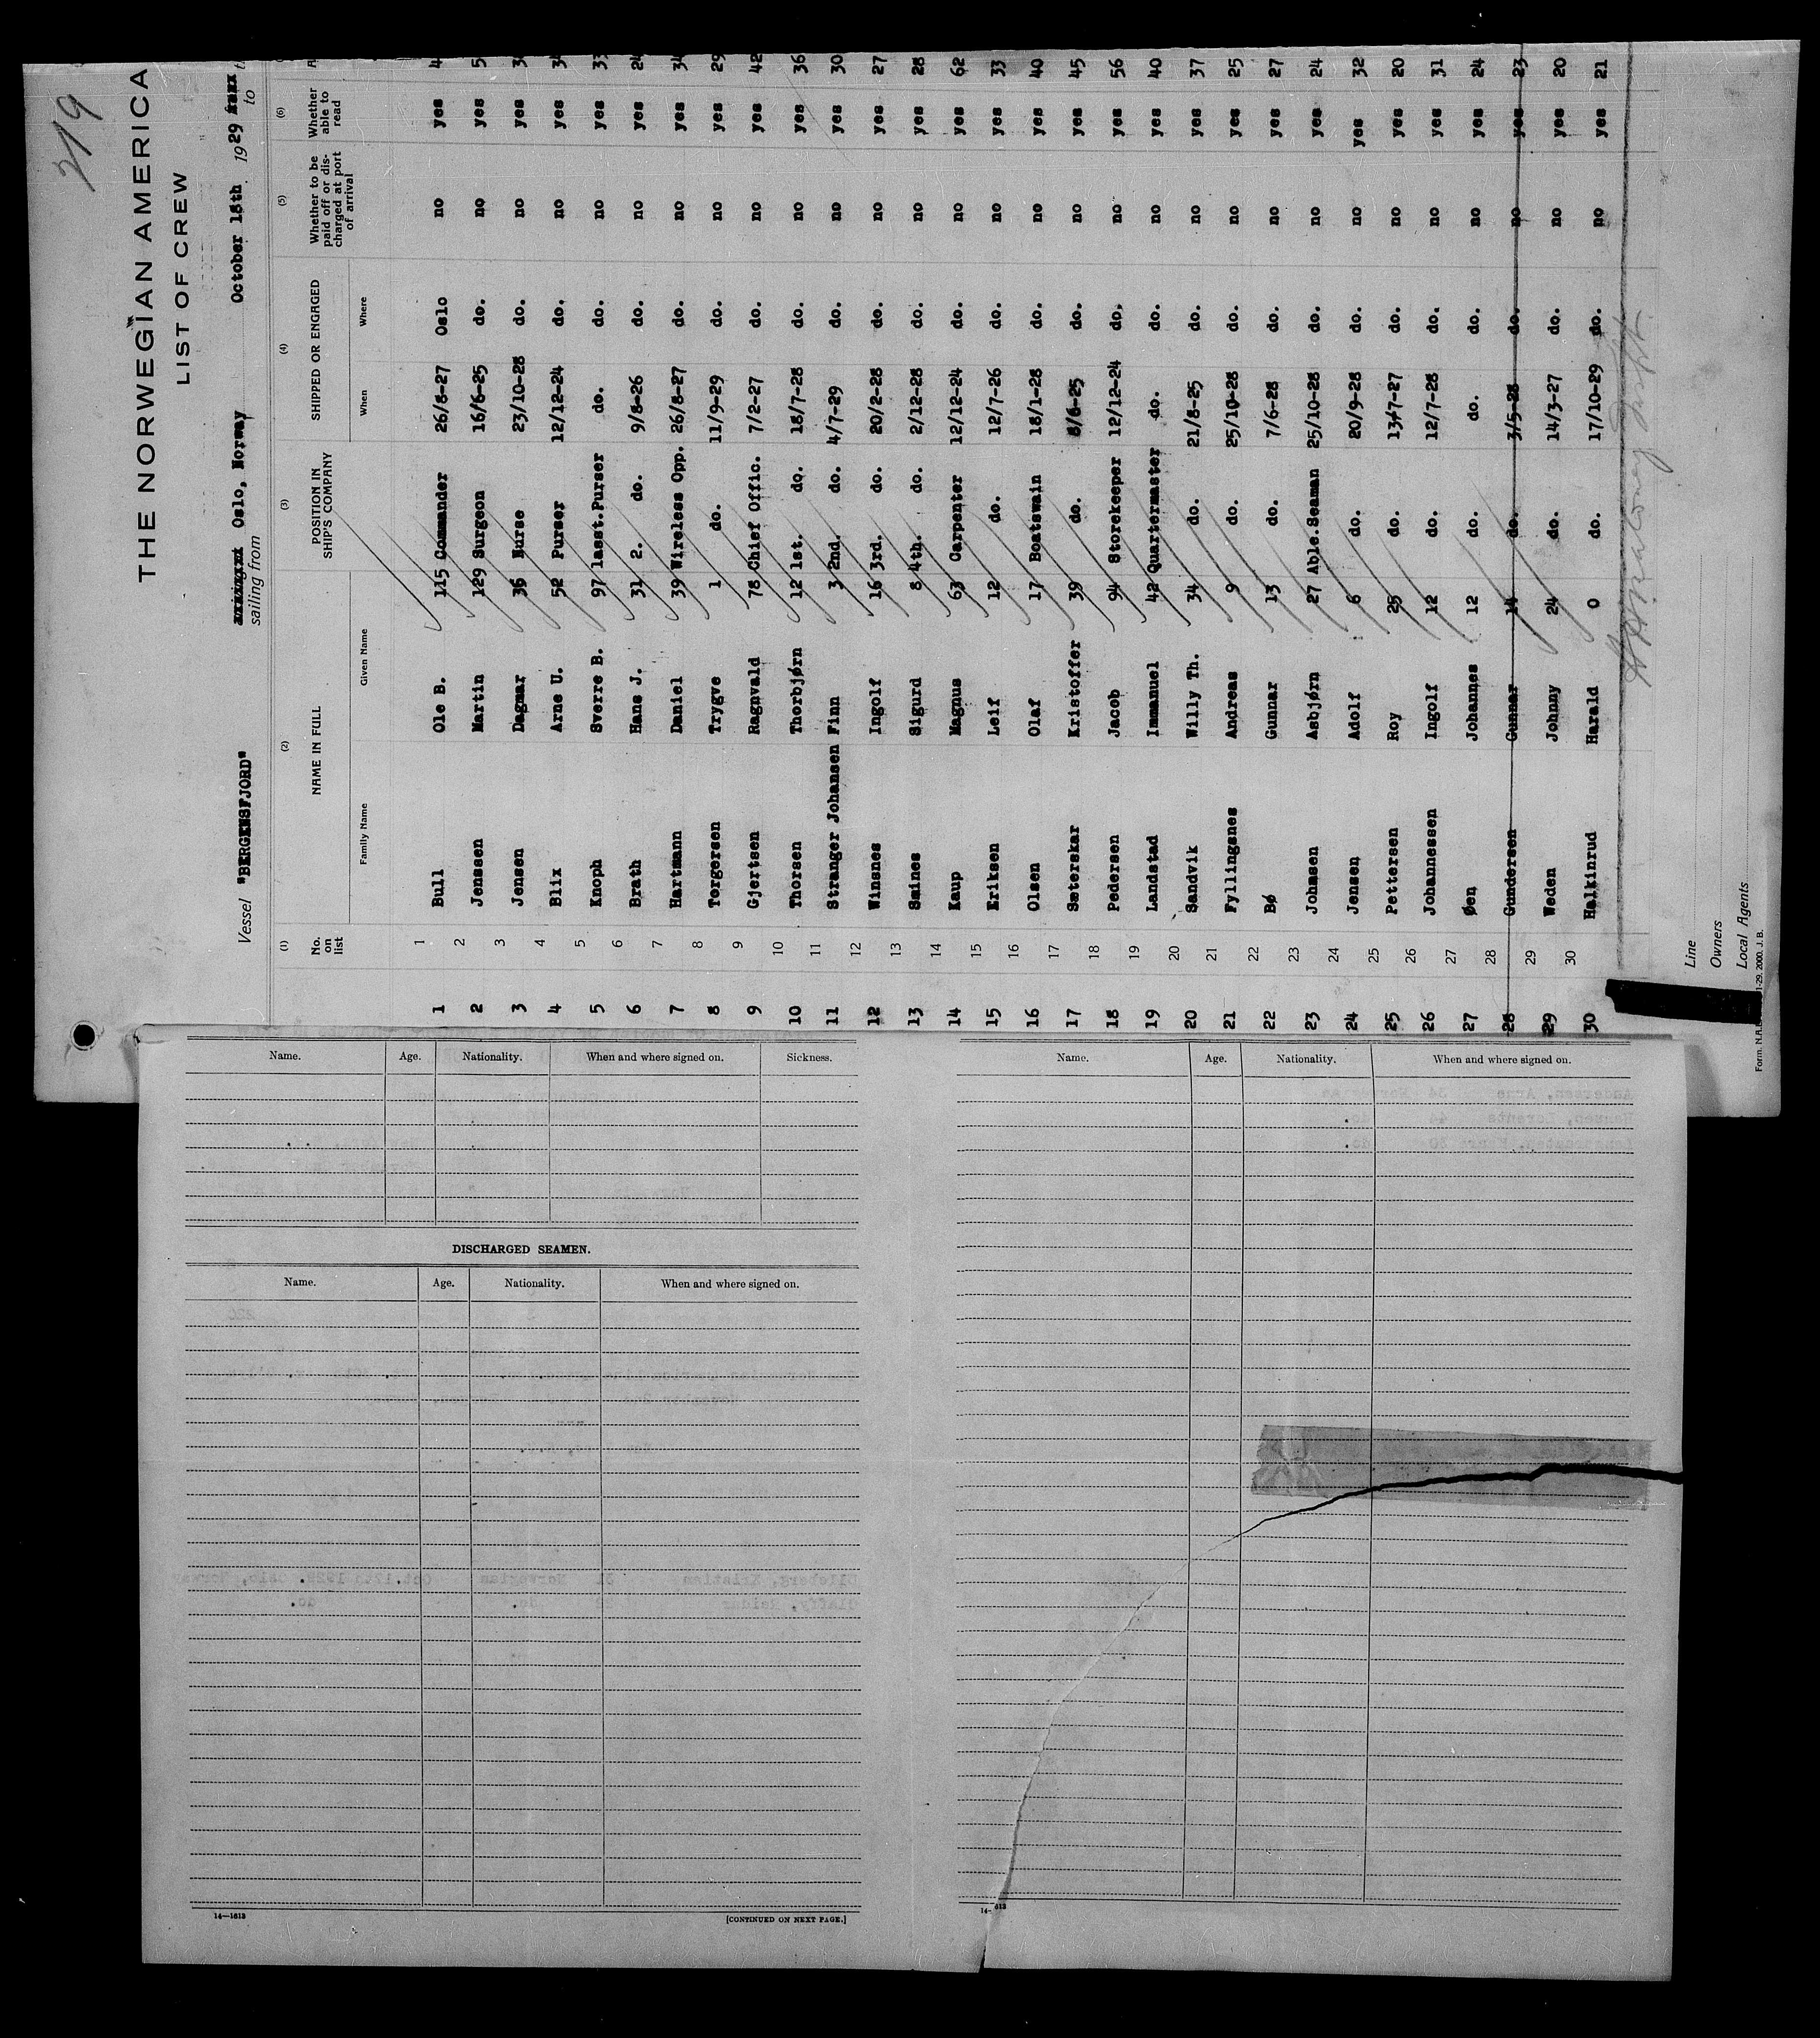 219
THE NORWEGIAN AMERICA
LIST OF CREW
Vessel "BERGENSFJORD" sailing from Oslo, Norway October 18th 1929 to
(1) (2) (3) (4) (5) (6)
No. on list NAME IN FULL POSITION IN SHIP'S COMPANY SHIPPED OR ENGAGED Whether to be paid off or discharged at port of arrival Whether able to read
Family Name Given Name When Where
1 1 Bull Ole B. 115 Commander 26/8-27 Oslo no yes
2 2 Jenssen Martin 129 Surgeon 16/6-25 do. no yes
3 3 Jensen Dagmar 36 Nurse 23/10-28 do. no yes
4 4 Blix Arne U. 52 Purser 12/12-24 do. no yes
5 5 Knoph Sverre B. 97 1asst.Purser do. do. no yes
6 6 Brath Hans J. 31 2. do. 9/8-26 do. no yes
7 7 Hartmann Daniel 39 Wireless Opp. 26/8-27 do. no yes 34
8 8 Torgersen Trygve 1 do. 11/9-29 do. no yes 29
9 9 Gjertsen Ragnvald 78 Chief Offic. 7/2-27 do. no yes 42
10 10 Thorsen Thorbjørn 12 1st. do. 18/7-28 do. no yes 36
11 11 Stranger Johansen Finn 3 2nd. do. 4/7-29 do. no yes 30
12 12 Winsnes Ingolf 16 3rd. do. 20/2-28 do. no yes 27
13 13 Saines Sigurd 8 4th. do. 2/12-28 do. no yes 28
14 14 Kaup Magnus 63 Carpenter 12/12-24 do. no yes 62
15 15 Eriksen Leif 12 do. 12/7-26 do. no yes 33
16 16 Olsen Olaf 17 Boatswain 18/1-28 do. no yes 40
17 17 Sæterskar Kristoffer 39 do. 8/6-25 do. no yes 45
18 18 Pedersen Jacob 94 Storekeeper 12/12-24 do. no yes 56
19 19 Landstad Immanuel 42 Quartermaster do. do. no yes 40
20 20 Sandvik Willy Th. 34 do. 21/8-25 do. no yes 37
21 21 Fyllingsnes Andreas 9 do. 25/10-28 do. no yes 25
22 22 Bø Gunnar 13 do. 7/6-28 do. no yes 27
23 23 Johnsen Asbjørn 27 Able.Seaman 25/10-28 do. no yes 24
24 24 Jensen Adolf 6 do. 20/9-28 do. no yes 32
25 25 Pettersen Roy 25 do. 13/7-27 do. no yes 20
26 26 Johannessen Ingolf 12 do. 12/7-28 do. no yes 31
27 27 Øen Johannes 12 do. do. do. no yes 24
28 28 Gundersen Gunnar 14 do. 3/5-28 do. no yes 23
29 29 Weden Johnny 24 do. 14/3-27 do. no yes 20
30 30 Halkinrud Harald 0 do. 17/10-29 do. no yes 21
Line
Owners
Local Agents
Form. N.A.L. 1-29. 2000. J.B.
Name. Age. Nationality. When and where signed on. Sickness.
DISCHARGED SEAMEN.
Name. Age. Nationality. When and where signed on.
14—1613
[CONTINUED ON NEXT PAGE.]
Name. Age. Nationality. When and where signed on.
14- 613